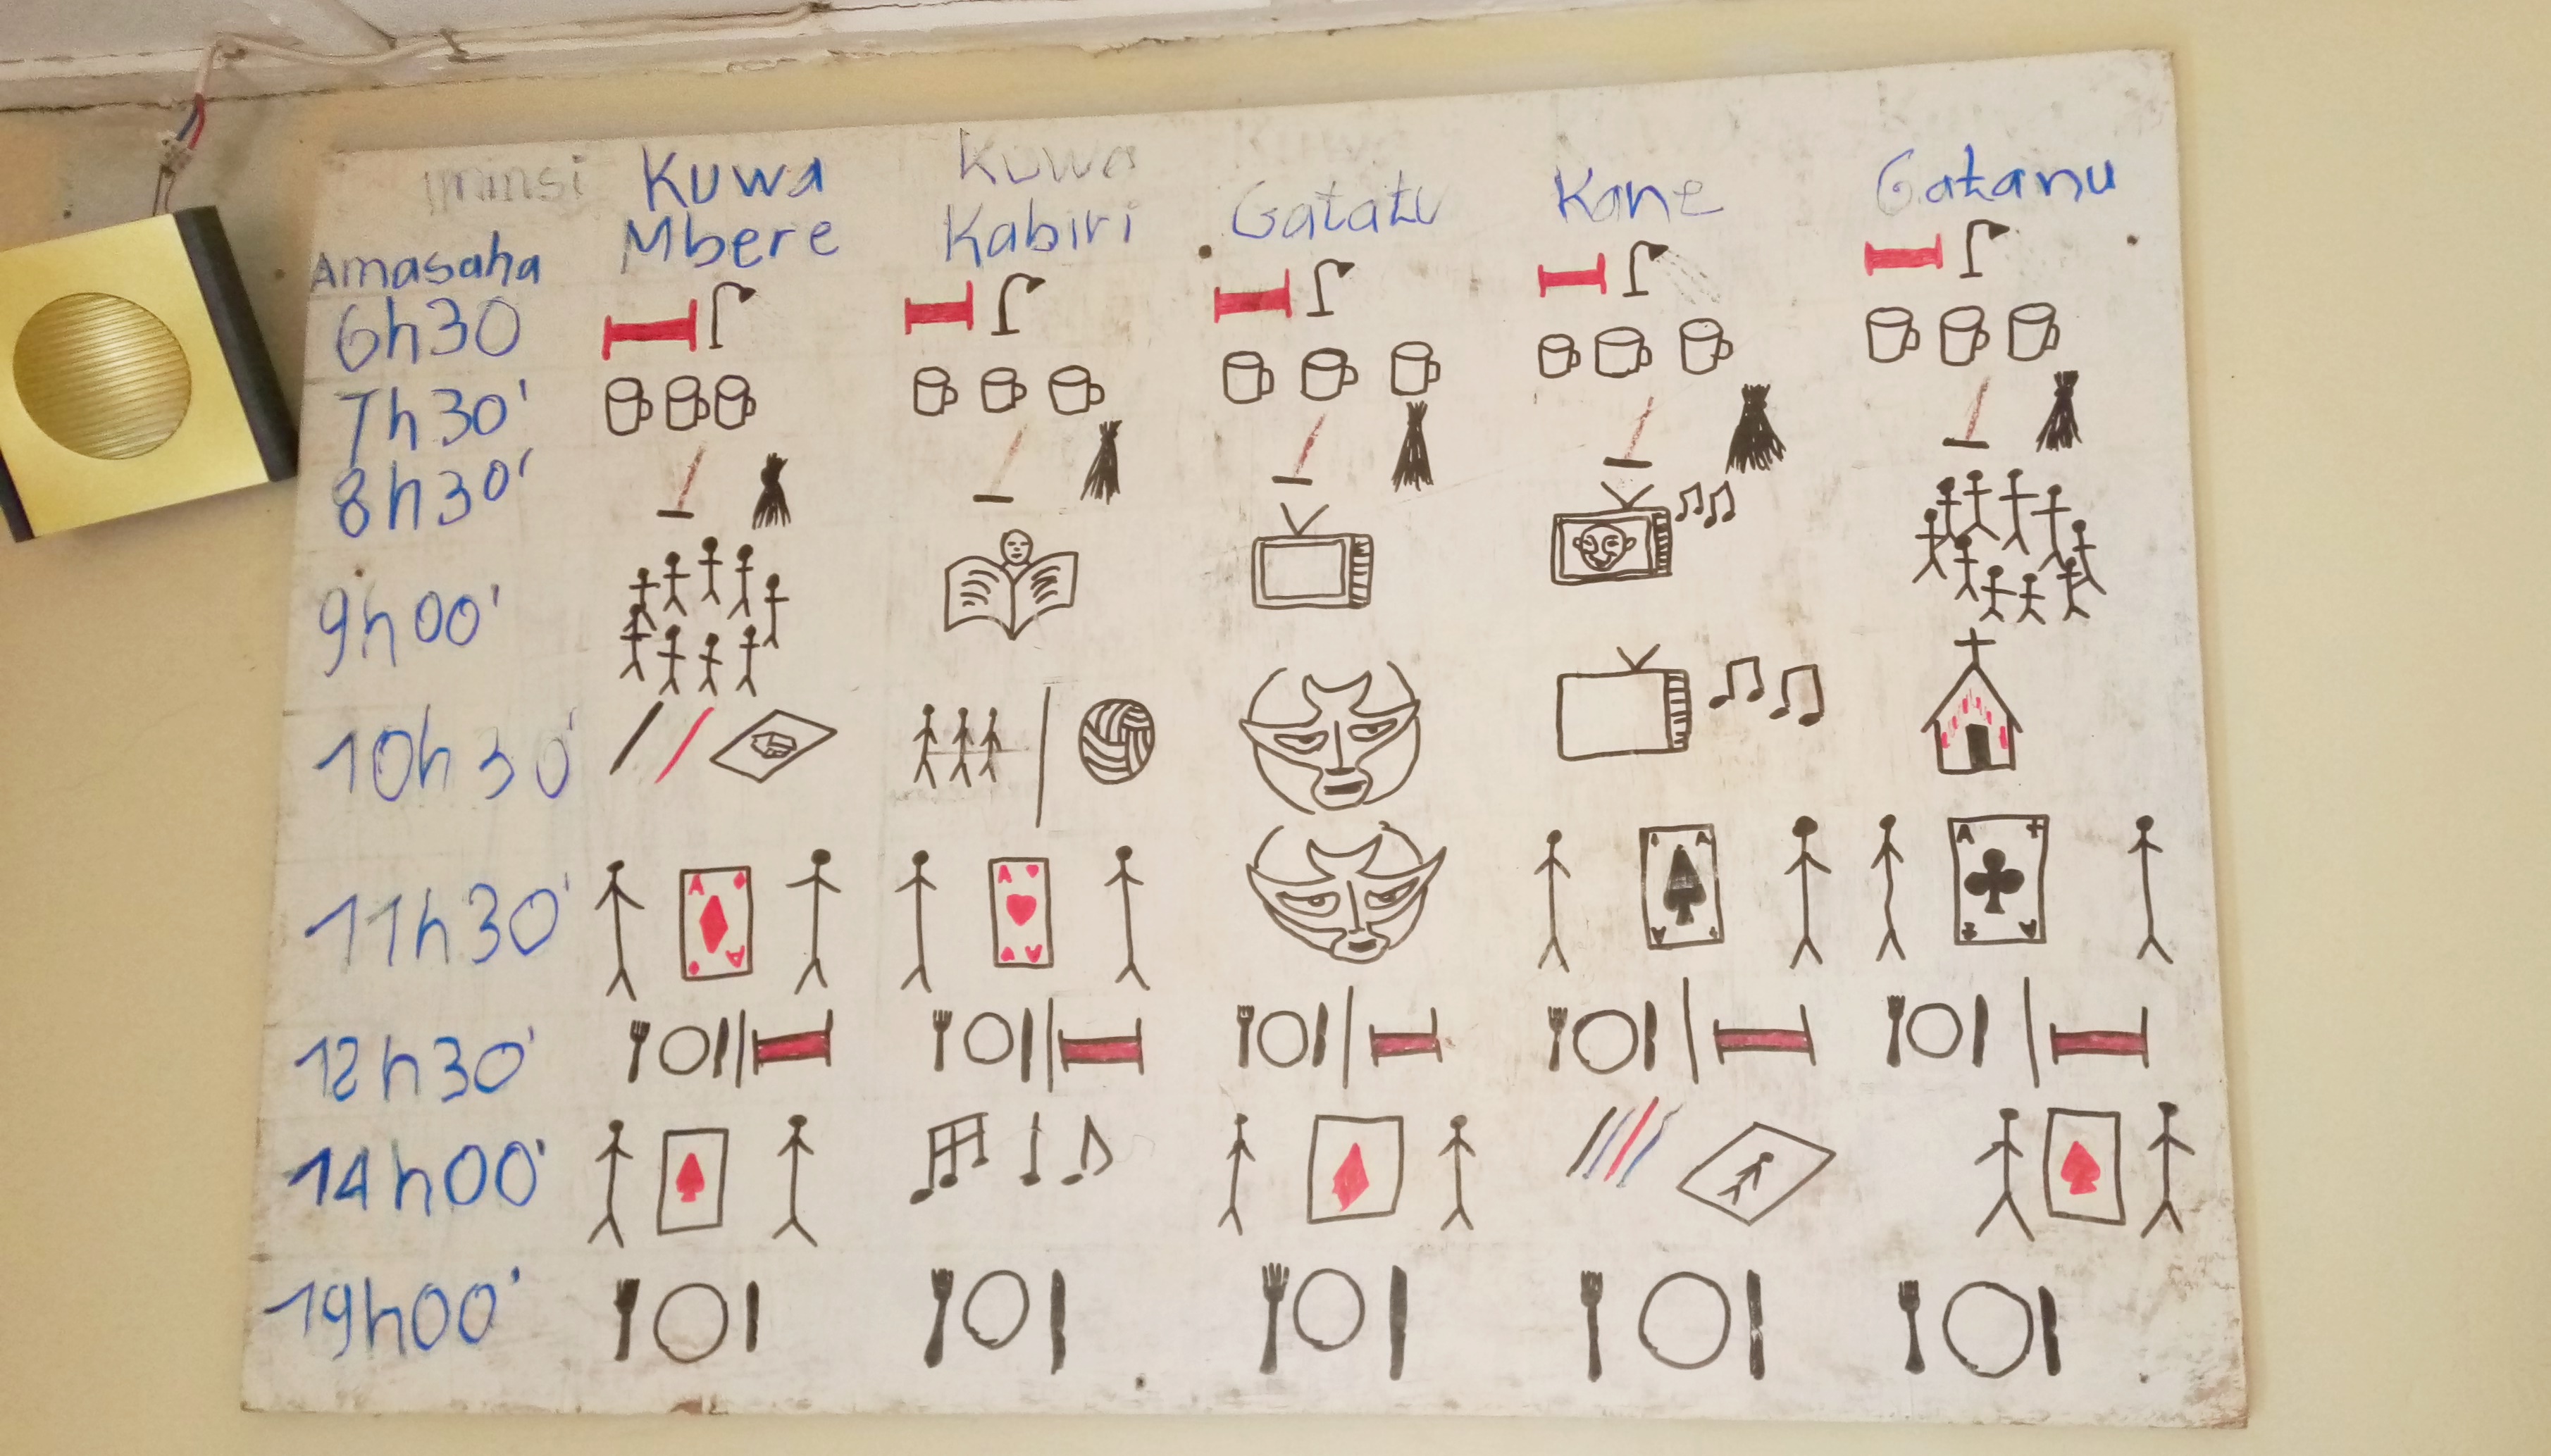 Iminsi Kuwa Mbere Kuwa Kabiri Gatatu Kane Gatanu
Amasaha
6h30
7h30'
8h30'
9h00'
10h30'
11h30'
A A A A A A A A
12h30'
14h00'
19h00'